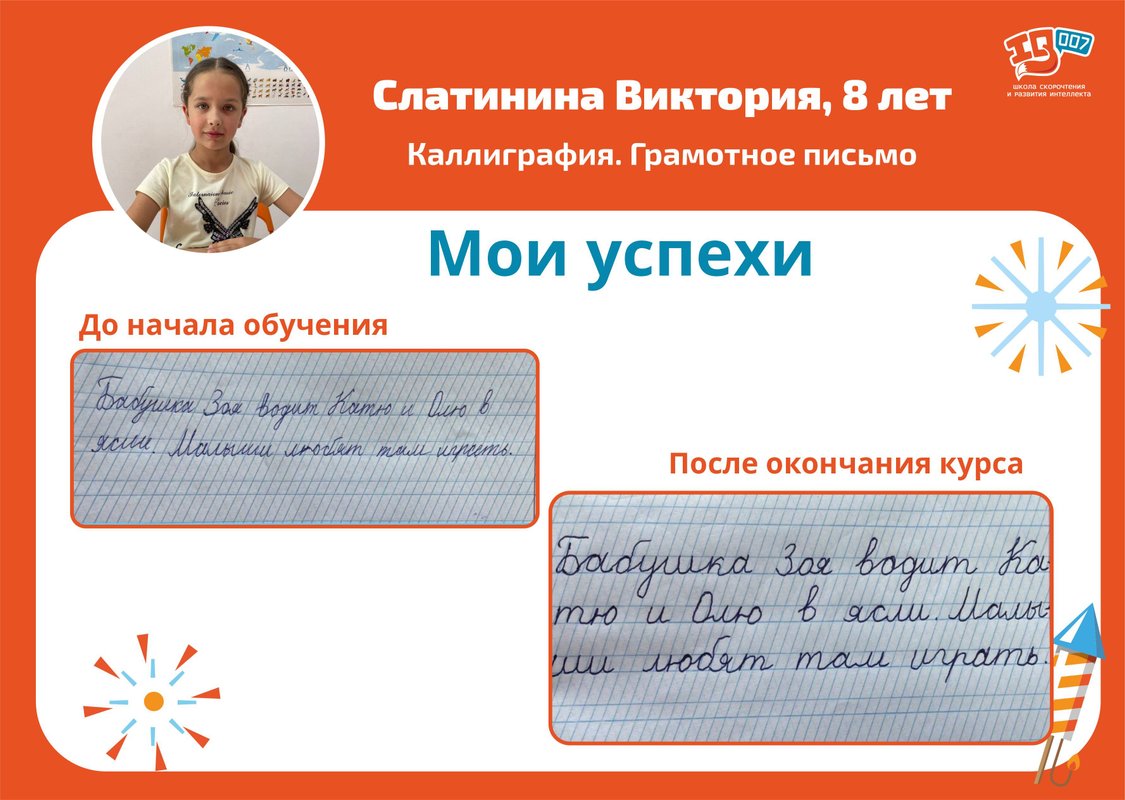 IQ 007
ШКОЛА СКОРОЧТЕНИЯ
И РАЗВИТИЯ ИНТЕЛЛЕКТА
Слатинина Виктория, 8 лет
Каллиграфия. Грамотное письмо
Мои успехи
До начала обучения
Бабушка Зоя водит Катю и Олю в
ясли. Малыши любят там играть.
После окончания курса
Бабушка Зоя водит Ка-
тю и Олю в ясли. Малы-
ши любят там играть.